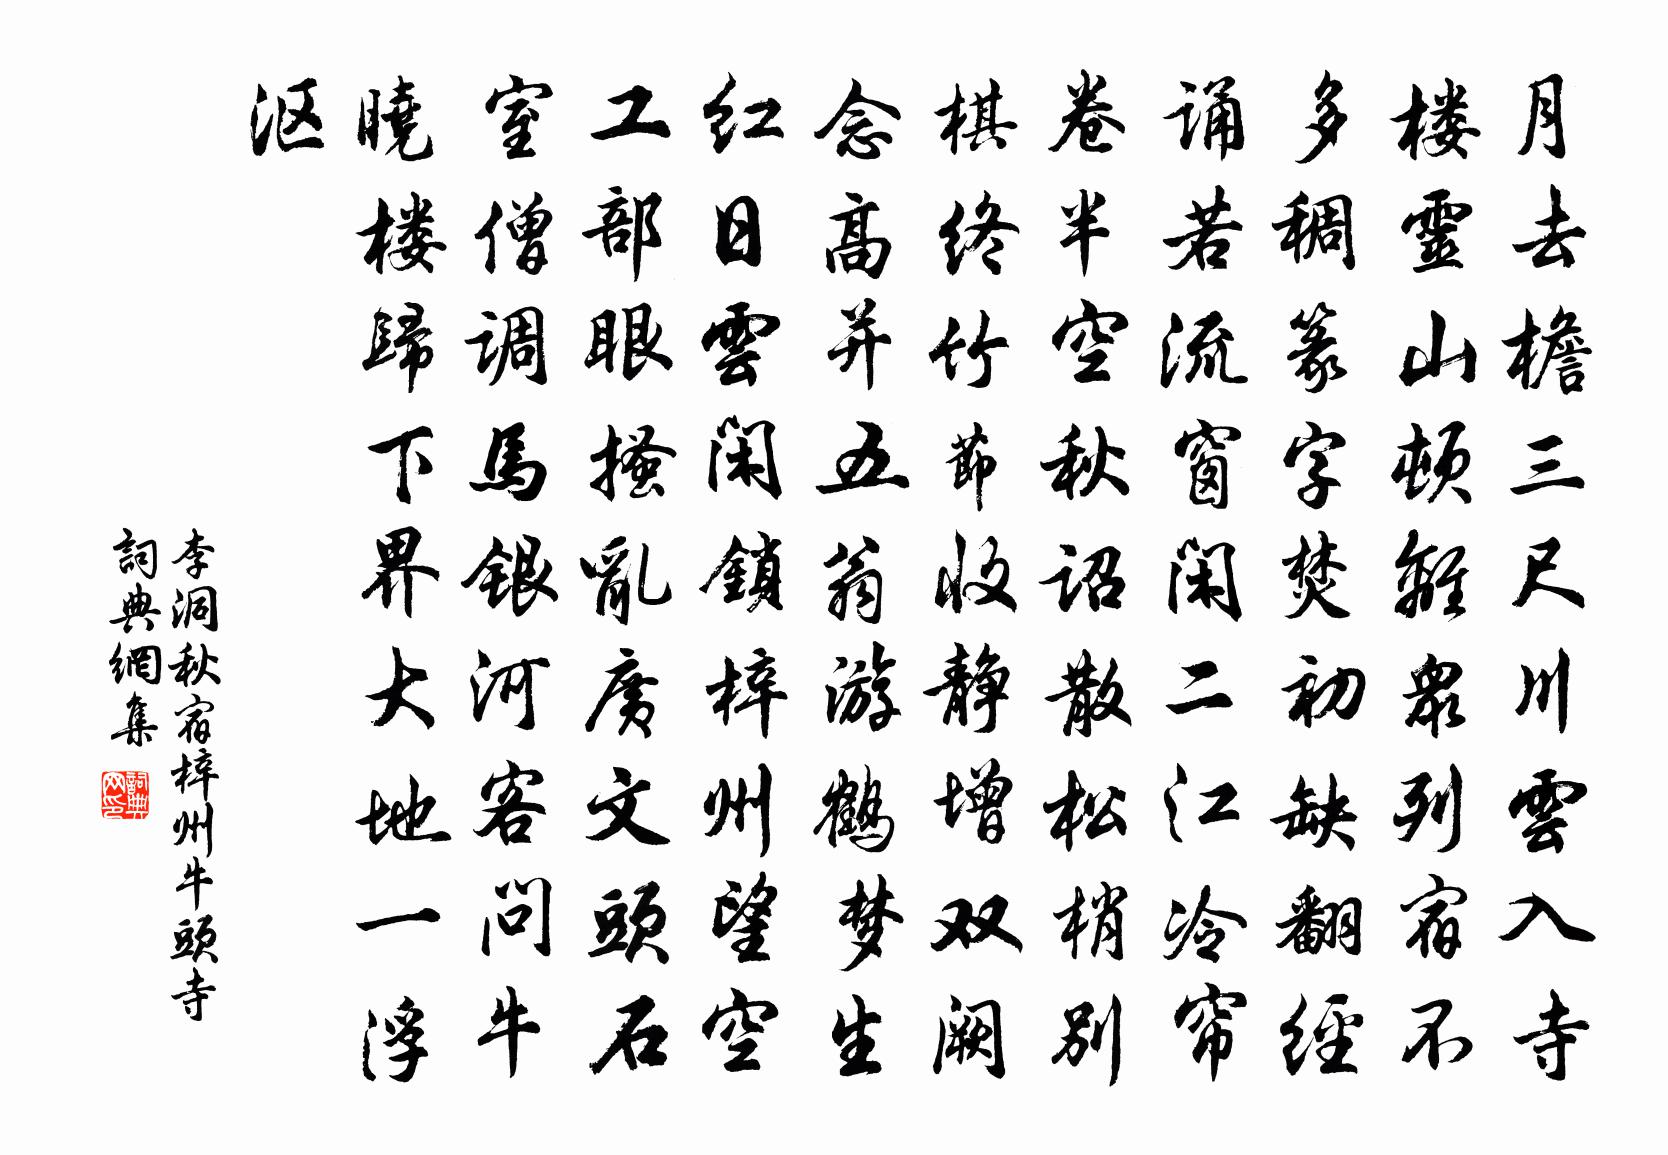 月去檐三尺川雲入寺
楼靈山頓離眾列宿不
多稠篆字焚初缺翻經
诵若流窗闲二江冷帘
卷半空秋诏散松梢别
棋终竹節收静增双阙
念高并五翁游鶴梦生
红日雲闲鎖梓州望空
工部眼搔亂廣文頭石
室僧调馬銀河客问牛
曉楼歸下界大地一浮
沤
李洞秋宿梓州牛頭寺
詞典網集
詞典网印